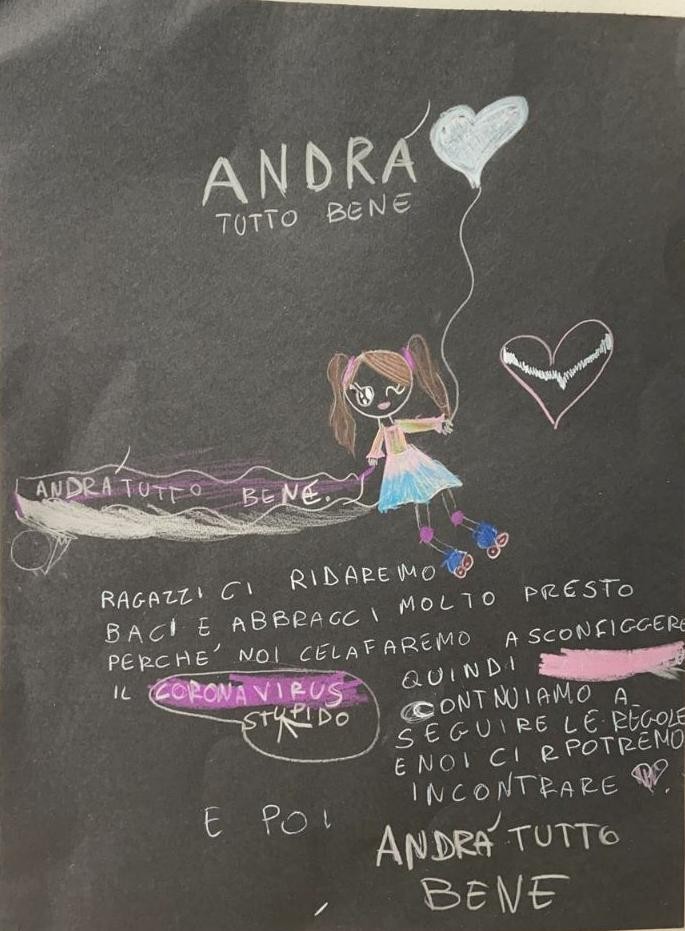 ANDRÁ
TUTTO BENE
ANDRÁ TUTTO BENE.
RAGAZZI CI RIDAREMO
BACI E ABBRACCI MOLTO PRESTO
PERCHE' NOI CELAFAREMO A SCONFIGGERE
IL CORONAVIRUS
STUPIDO
QUINDI
CONTNUIAMO A
SEGUIRE LE REGOLE
E NOI CI RPOTREMO
INCONTRARE
E POI
ANDRÁ TUTTO
BENE